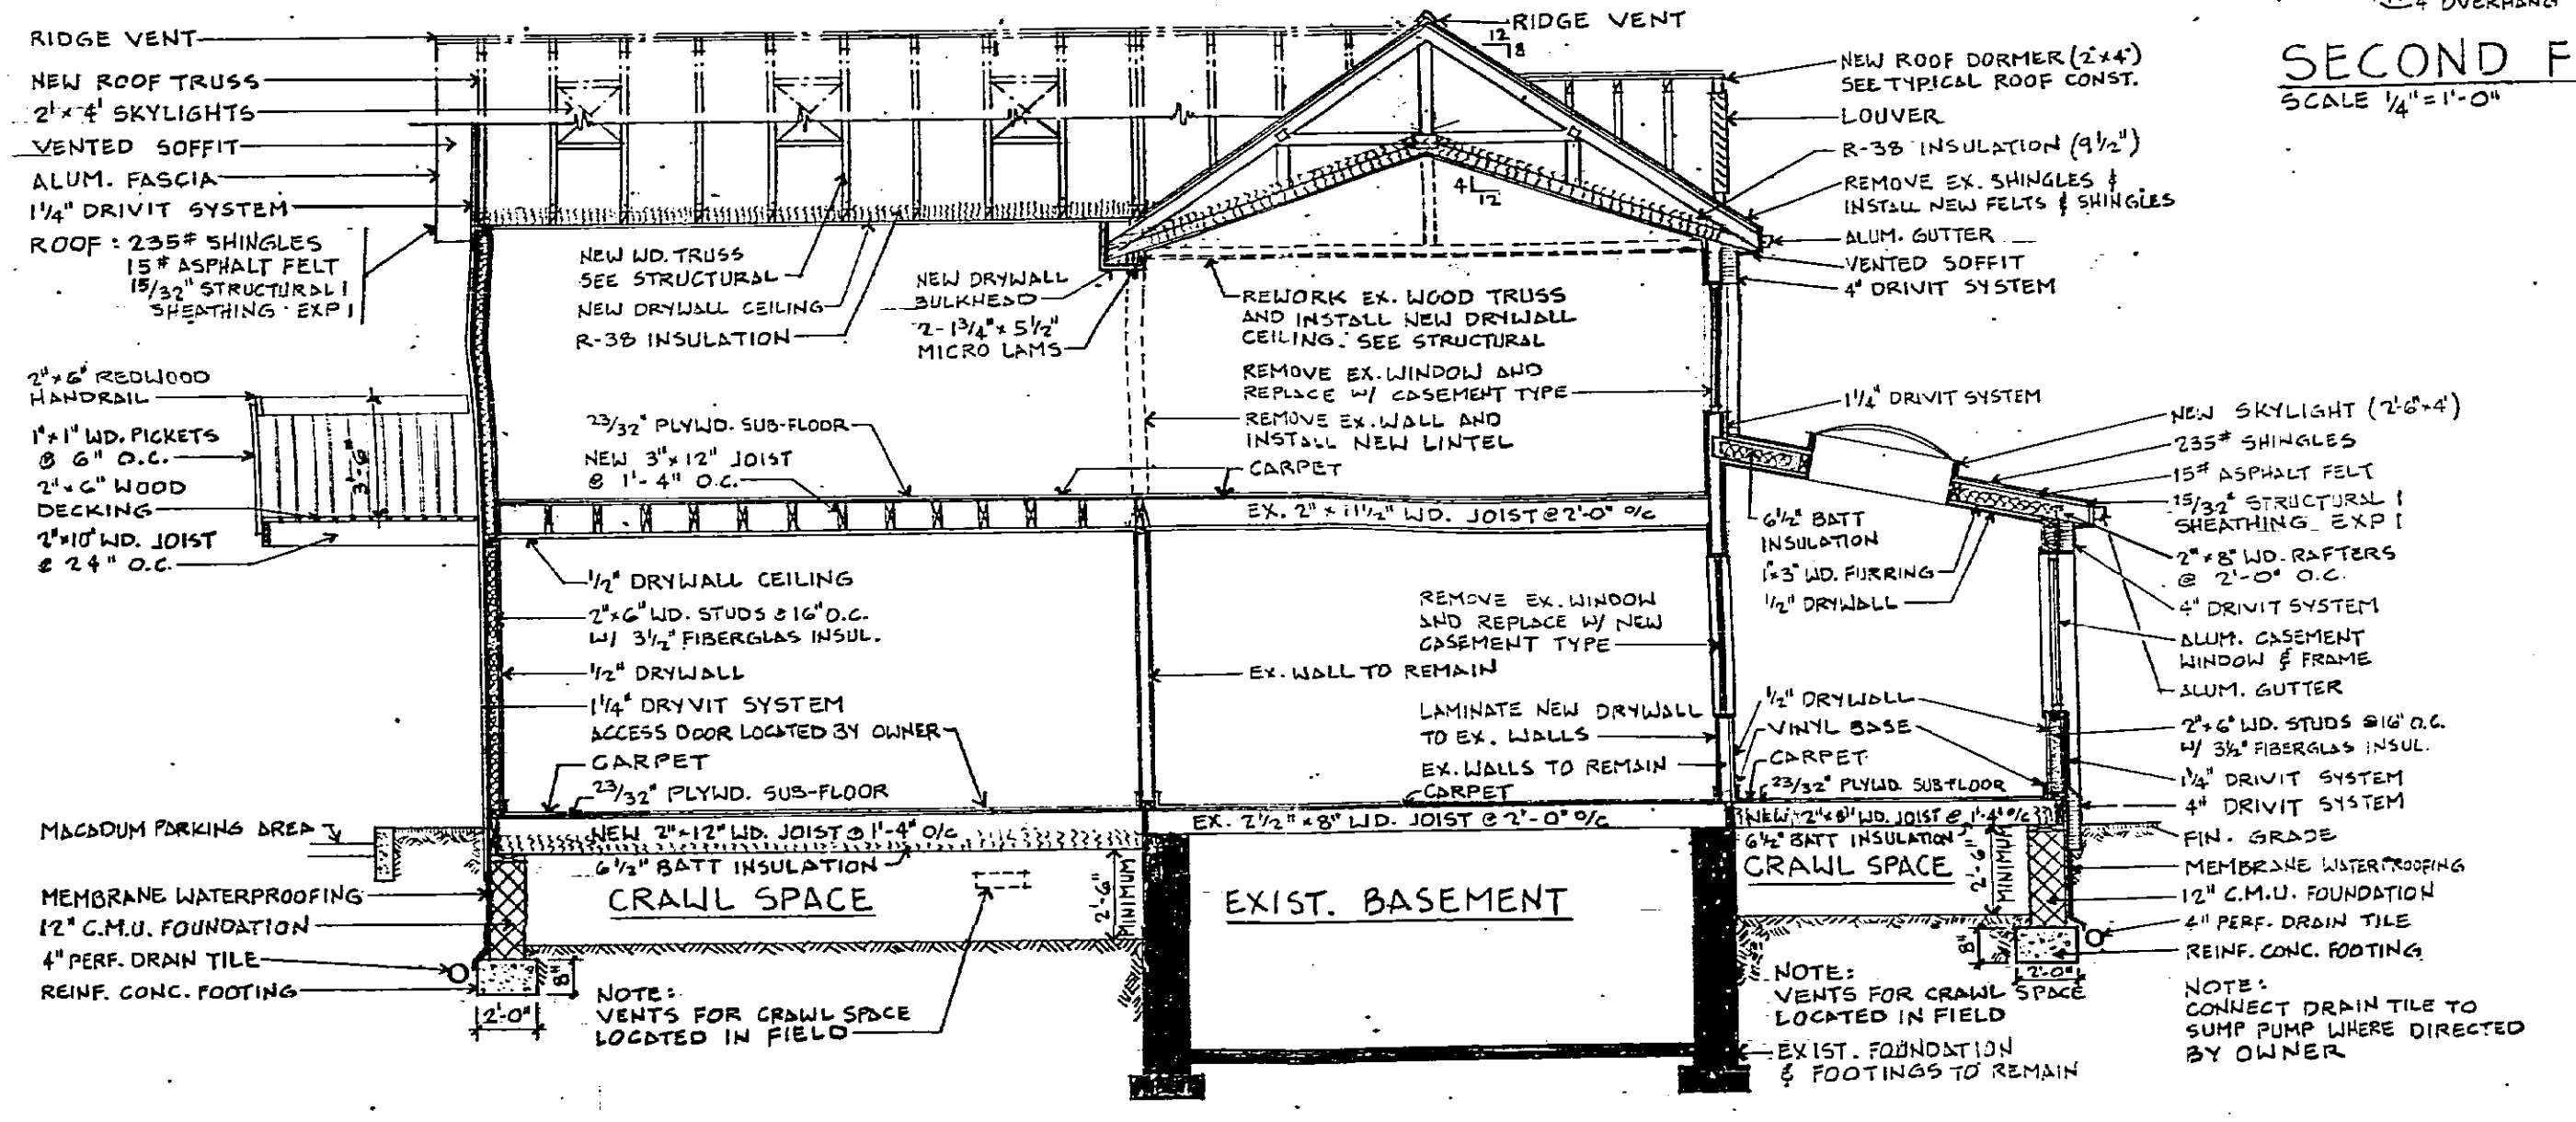 4 OVERHANG
SECOND F
SCALE 1/4" = 1'-0"
RIDGE VENT
NEW ROOF TRUSS
2' x 4' SKYLIGHTS
VENTED SOFFIT
ALUM. FASCIA
1 1/4" DRIVIT SYSTEM
ROOF : 235# SHINGLES
15# ASPHALT FELT
15/32" STRUCTURAL 1
SHEATHING EXP 1
2" x 6" REDWOOD
HANDRAIL
1" x 1" WD. PICKETS
@ 6" O.C.
2" x 6" WOOD
DECKING
2" x 10" WD. JOIST
@ 24" O.C.
3'-6"
MACADUM PARKING AREA
MEMBRANE WATERPROOFING
12" C.M.U. FOUNDATION
4" PERF. DRAIN TILE
REINF. CONC. FOOTING
2'-0"
8"
NEW WD. TRUSS
SEE STRUCTURAL
NEW DRYWALL CEILING
R-38 INSULATION
NEW DRYWALL
BULKHEAD
2-1 3/4" x 5 1/2"
MICRO LAMS
23/32" PLYWD. SUB-FLOOR
NEW 3" x 12" JOIST
@ 1'-4" O.C.
1/2" DRYWALL CEILING
2" x 6" WD. STUDS @ 16" O.C.
W/ 3 1/2" FIBERGLAS INSUL.
1/2" DRYWALL
1 1/4" DRYVIT SYSTEM
ACCESS DOOR LOCATED BY OWNER
CARPET
23/32" PLYWD. SUB-FLOOR
NEW 2" x 12" WD. JOIST @ 1'-4" O/C
6 1/2" BATT INSULATION
CRAWL SPACE
2'-6"
MINIMUM
NOTE:
VENTS FOR CRAWL SPACE
LOCATED IN FIELD
RIDGE VENT
12
8
4
12
REWORK EX. WOOD TRUSS
AND INSTALL NEW DRYWALL
CEILING. SEE STRUCTURAL
REMOVE EX. WINDOW AND
REPLACE W/ CASEMENT TYPE
REMOVE EX. WALL AND
INSTALL NEW LINTEL
CARPET
EX. 2" x 11 1/2" WD. JOIST @ 2'-0" O/C
REMOVE EX. WINDOW
AND REPLACE W/ NEW
CASEMENT TYPE
EX. WALL TO REMAIN
LAMINATE NEW DRYWALL
TO EX. WALLS
EX. WALLS TO REMAIN
CARPET
EX. 2 1/2" x 8" WD. JOIST @ 2'-0" O/C
EXIST. BASEMENT
NEW ROOF DORMER (2' x 4')
SEE TYPICAL ROOF CONST.
LOUVER
R-38 INSULATION (9 1/2")
REMOVE EX. SHINGLES &
INSTALL NEW FELTS & SHINGLES
ALUM. GUTTER
VENTED SOFFIT
4" DRIVIT SYSTEM
1 1/4" DRIVIT SYSTEM
NEW SKYLIGHT (2'-6" x 4')
235# SHINGLES
15# ASPHALT FELT
15/32" STRUCTURAL 1
SHEATHING EXP 1
2" x 8" WD. RAFTERS
@ 2'-0" O.C.
4" DRIVIT SYSTEM
ALUM. CASEMENT
WINDOW & FRAME
ALUM. GUTTER
6 1/2" BATT
INSULATION
1" x 3" WD. FURRING
1/2" DRYWALL
1/2" DRYWALL
VINYL BASE
CARPET
23/32" PLYWD. SUB-FLOOR
NEW 2" x 8" WD. JOIST @ 1'-4" O/C
6 1/2" BATT INSULATION
CRAWL SPACE
2'-6"
MINIMUM
8"
2'-0"
NOTE:
VENTS FOR CRAWL SPACE
LOCATED IN FIELD
EXIST. FOUNDATION
& FOOTINGS TO REMAIN
2" x 6" WD. STUDS @ 16" O.C.
W/ 3 1/2" FIBERGLAS INSUL.
1 1/4" DRIVIT SYSTEM
4" DRIVIT SYSTEM
FIN. GRADE
MEMBRANE WATERPROOFING
12" C.M.U. FOUNDATION
4" PERF. DRAIN TILE
REINF. CONC. FOOTING
NOTE:
CONNECT DRAIN TILE TO
SUMP PUMP WHERE DIRECTED
BY OWNER